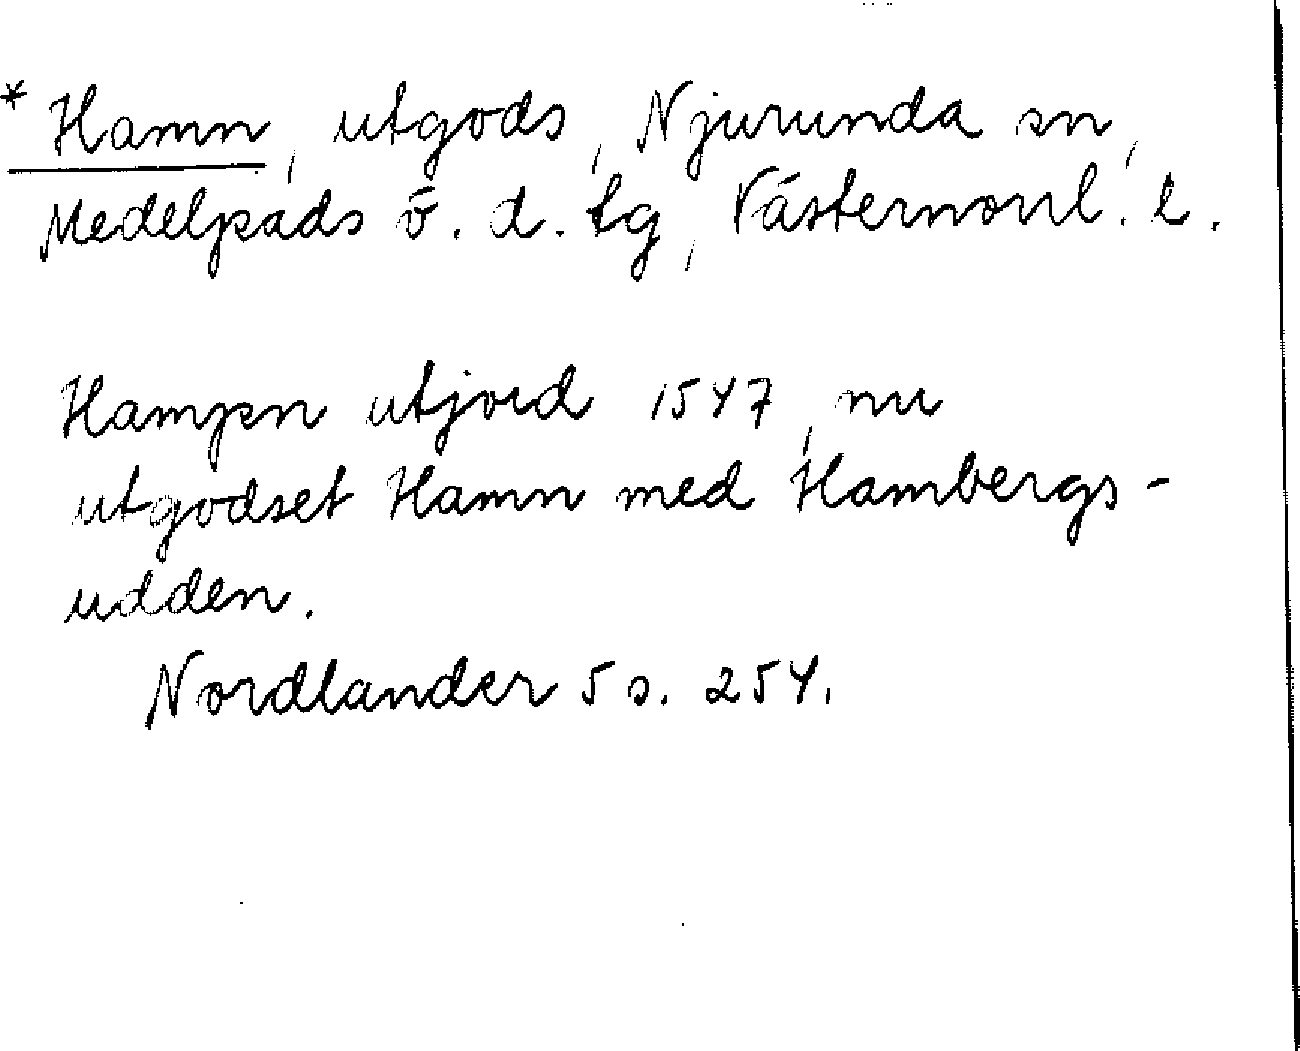 * Hamn, utgods, Njurunda sn,
Medelpads ö. d. tg, Västernorrl. l.
Hampn utjord 1547, nu
utgodset Hamn med Hambergs-
udden.
Nordlander 5 s. 254.